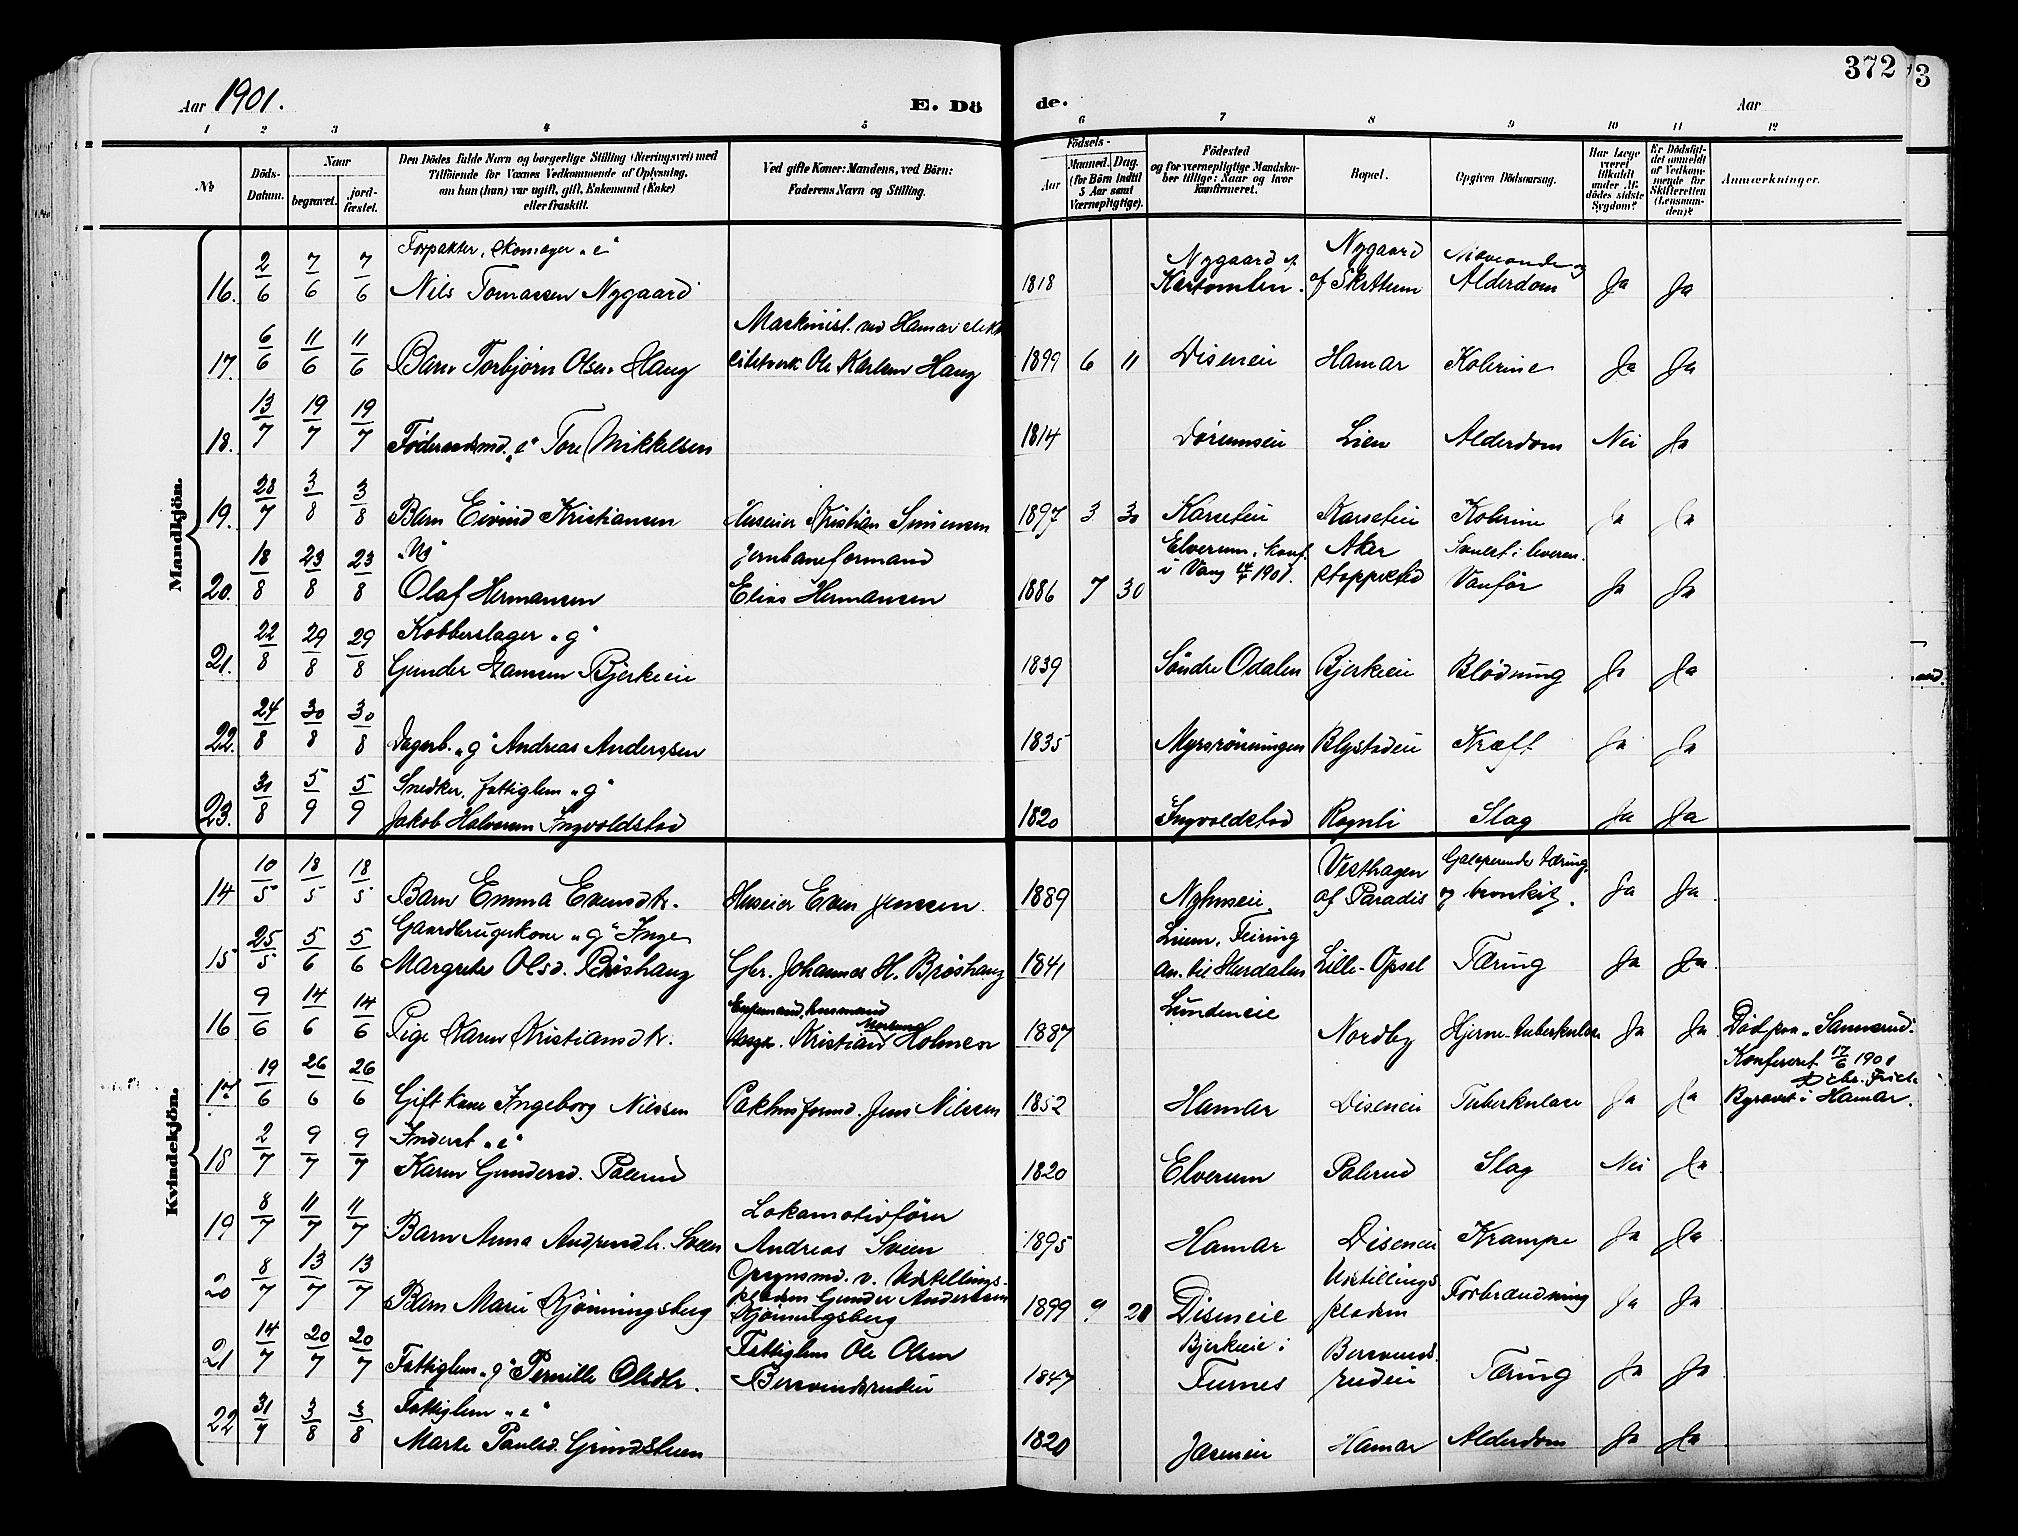 372
3
Aar 1901.
E. Dö de.
Aar
1 2 3 4 5 6 7 8 9 10 11 12
No
Döds-Datum.
Naar
begravet.
jord-fæstet.
Den Dödes fulde Navn og borgerlige Stilling (Næringsvei) med
Tilföiende for Voxnes Vedkommende af Oplysning,
om hun (han) var ugift, gift, Enkemand (Enke)
eller fraskilt.
Ved gifte Koner: Mandens, ved Börn:
Faderens Navn og Stilling.
Födsels-
Aar
Maaned. Dag.
(for Börn indtil
5 Aar samt
Værnepligtige).
Födested
og for værnepligtige Mandska-
ber tillige: Naar og hvor
konfirmeret.
Bopæl.
Opgiven Dödsaarsag.
Har Læge
været
tilkaldt
under Af-
dödes sidste
Sygdom?
Er Dödsfal-
det anmeldt
af Vedkom-
mende for
Skifteretten
(Lensman-
den)?
Anmærkninger.
Mandkjön.
Forpakter, skomager „e“
16. 2/6 7/6 7/6 Nils Tomassen Nygaard 1818 Nygaard af Kastomten. Nygaard af Skattum Alderdom Ja Ja
Maskinist ved Hamar elektr
17. 6/6 11/6 11/6 Barn Torbjørn Olsen Haug citetverk Ole Karlsen Haug 1899 6 11 Diseneie Hamar Kolerine Ja Ja
18. 13/7 19/7 19/7 Føderaadsmd. „e“ Tore Mikkelsen 1814 Lien Alderdom Nei Ja
19. 28/7 3/8 3/8 Barn Eivind Kristiansen Huseier Kristian Simensen 1897 3 30 Karseteie Karseteie Kolerine Ja Ja
„Ug“ Jernbaneformand Elverum, konf. Aker
20. 18/8 23/8 23/8 Olaf Hermansen Elias Hermansen 1886 7 30 i Vang 1901. stoppested Vanfør Ja Ja
Kobberslager „g“
21. 22/8 29/8 29/8 Gunder Hansen Bjerkeeie 1839 Söndre Odalen Bjerkeie Blödning Ja Ja
22. 24/8 30/8 30/8 Dagarb. „g“ Andreas Anderssen 1835 Myrsrönningen Blystadeie Kræft Ja Ja
Snedker, fattiglem „g“
23. 31/8 5/9 5/9 Jakob Halvorsen Ingvoldstad 1820 Ingvoldstad Rognli Slag Ja Ja
Kvindekjön.
Vesthagen Galoperende tæring
14 10/5 18/5 18/5 Barn Emma Evensdtr. Huseier Even Jenssen 1889 af Paradis og bronkit. Ja Ja
Gaardbrugerkone „g“ Inge Feiring
15 25/5 5/6 5/6 Margrete Olsd. Brøshaug Gbr. Johannes H. Brøshaug 1841 an. til Hurdalen Lille-Opsal Tæring Ja Ja
Lundeneie
16 9/6 14/6 14/6 Pige Karen Kristiansdtr. Kristian Holmen 1887 Nordby Hjerne-tuberkulose Ja Ja Död paa „Sannerud“.
Konfereret 17/6 1901
17 19/6 26/6 26/6 Gift kone Ingeborg Nilssen Pakhusformd. Jens Nilssen 1852 Hamar Diseneie Tuberkulose Ja Ja Begravet i Hamar.
Inderst „e“
18 2/7 9/7 9/7 Karen Gundersd. Palerud 1820 Elverum Palerud Slag Nei Ja
Lokomotivfører
19 8/7 11/7 11/7 Barn Anna Andreasdtr. Sveen Andreas Sveen 1895 Hamar Diseneie Krampe Ja Ja
Opsynsmd. v. Udstillings-
pladsen Gunder Andersen Udstillings
20 8/7 13/7 13/7 Barn Marie Kjönningsberg Kjönningsberg 1899 9 20 Diseneie pladsen Forbrænding Ja Ja
Fattiglem Ole Olsen Bjerkeie i Bersvends
21 14/7 20/7 20/7 Fattiglem „g“ Pernille Olsdtr. Bersvendsrudeie 1847 Furnes rudeie Tæring Ja Ja
Fattiglem „e“
22 31/7 3/8 3/8 Marte Paulsd. Grindstuen 1820 Hamar Alderdom Ja Ja